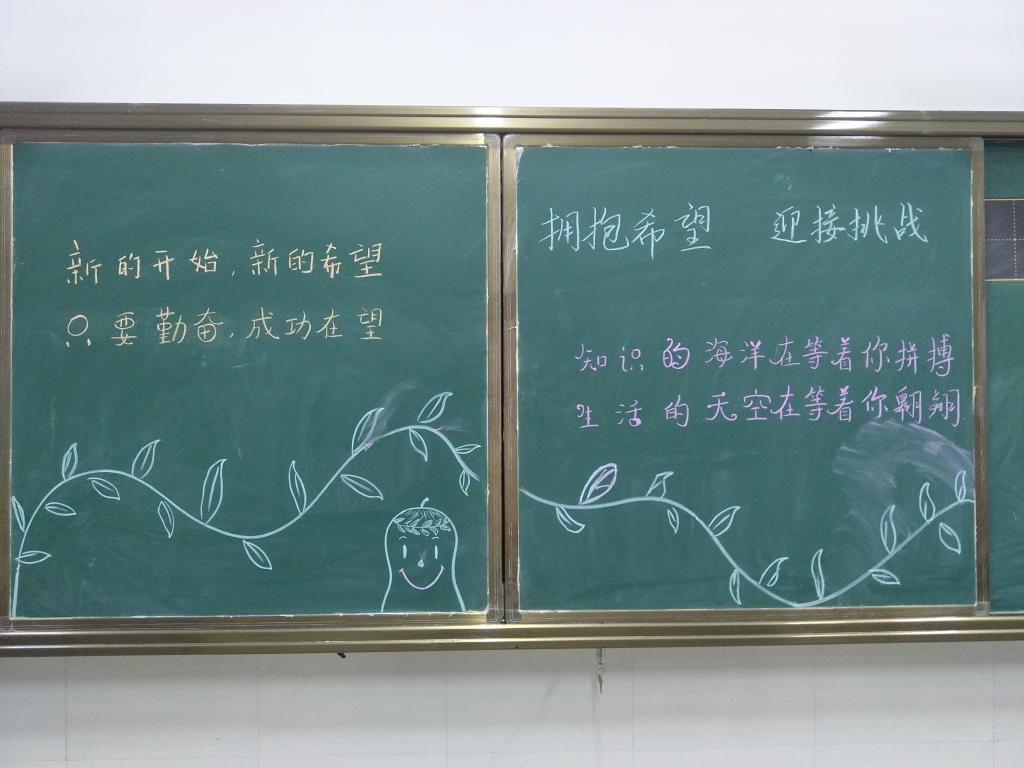 新的开始,新的希望
只要勤奋,成功在望
拥抱希望 迎接挑战
知识的海洋在等着你拼搏
生活的天空在等着你翱翔